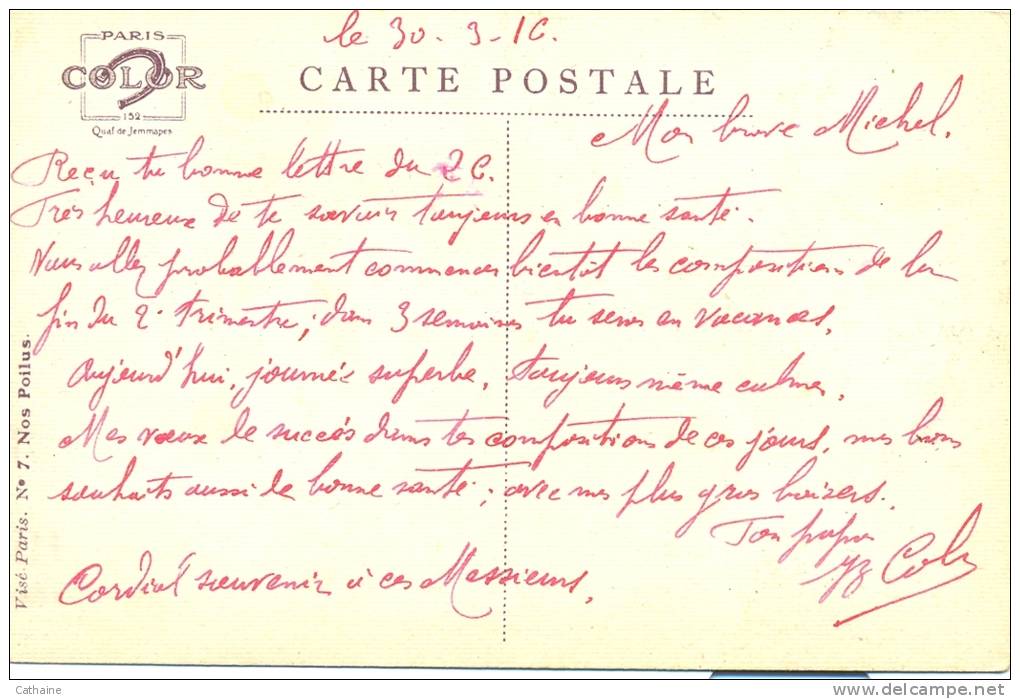 PARIS
COLOR
152
Quai de Jemmapes
le 30-3-16.
CARTE POSTALE
Mon brave Michel,
Reçu ta bonne lettre du 26.
Très heureux de te savoir toujours en bonne santé.
Vous allez probablement commencer bientôt les compositions de la
fin du 2e trimestre; dans 3 semaines tu seras en vacances.
Aujourd'hui, journée superbe, toujours même calme.
Mes vœux de succès dans tes compositions de ces jours, mes bons
souhaits aussi de bonne santé; avec mes plus gros baisers.
Ton papa
Cordial souvenir à ces Messieurs.
Visé Paris. No 7. Nos Poilus.
Cathaine
www.delcampe.net